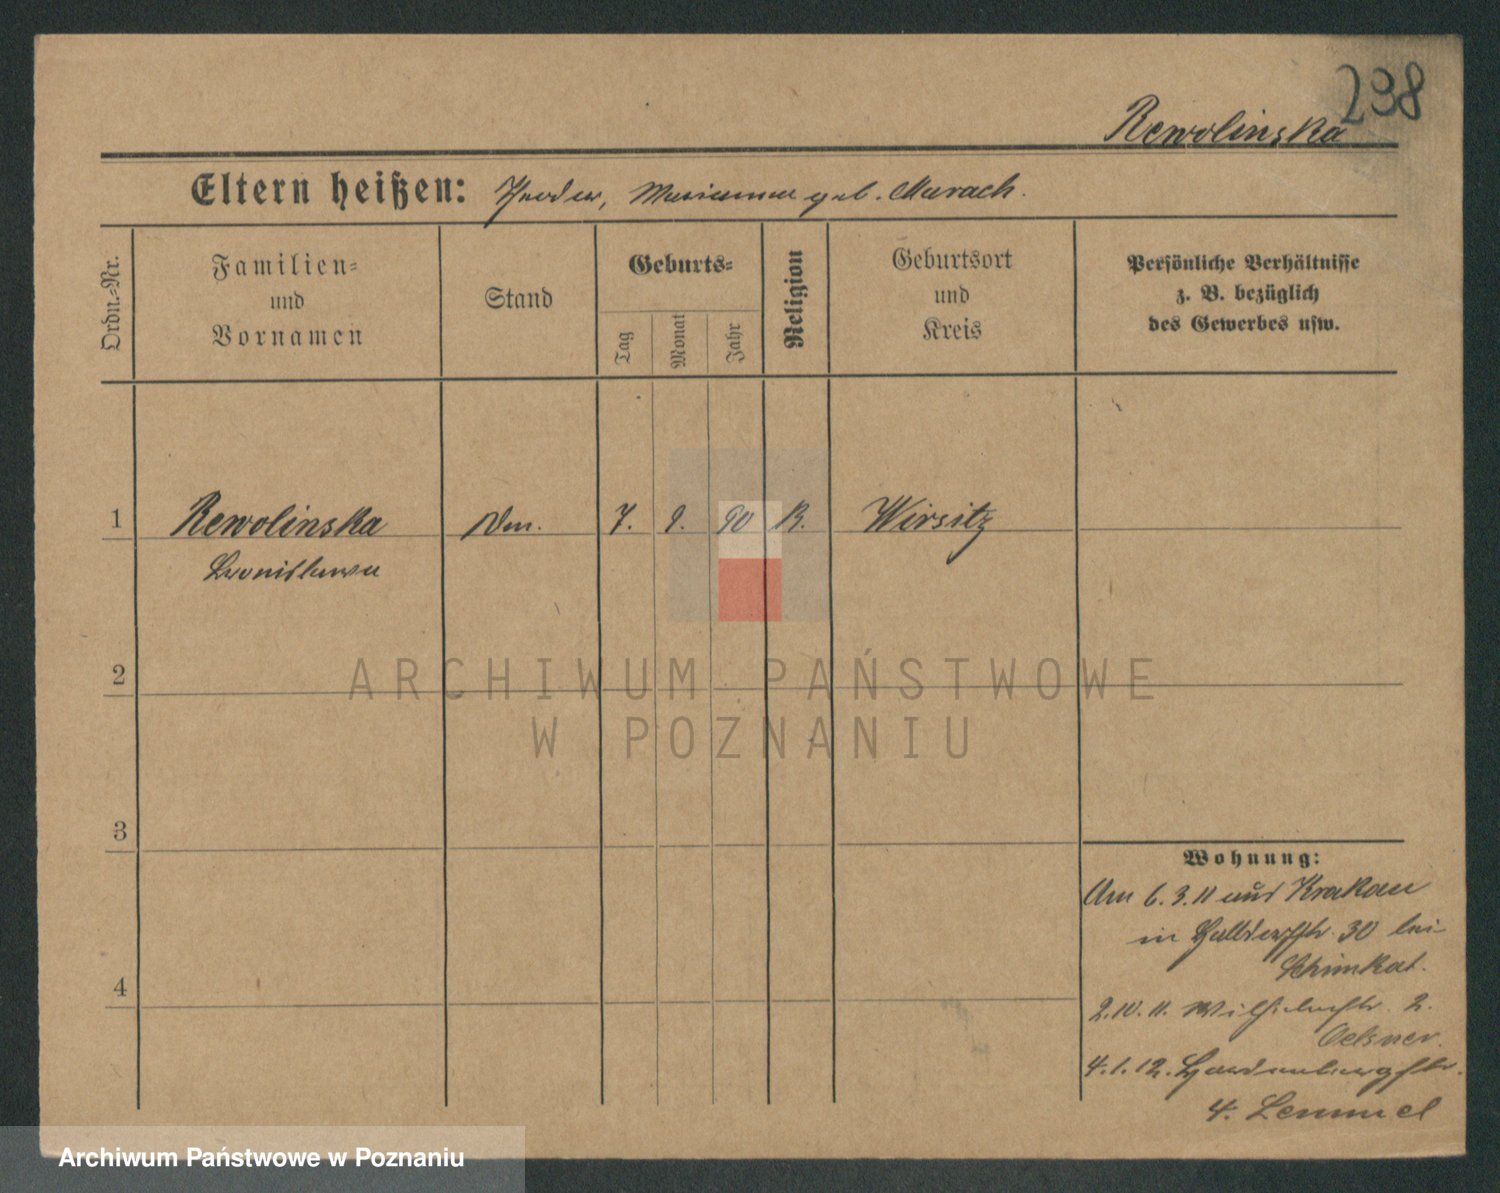 238
Rewolinska
Eltern heißen: Theodor, Marianna geb. Murach.
Ordn.-Nr.
Familien-
und
Vornamen
Stand
Geburts-
Tag
Monat
Jahr
Religion
Geburtsort
und
Kreis
Persönliche Verhältnisse
z. B. bezüglich
des Gewerbes usw.
1 Rewolinska 7. 9. 90 K. Wirsitz
Bronislawa
2
ARCHIWUM PAŃSTWOWE
W POZNANIU
3
4
Wohnung:
Am 6.3.11 aus Krakau
in 30 bei
Schimkat.
2.10.11. Wilhelmstr. 2.
Oelsner.
4.1.12. Hardenbergstr.
4. Lemmel
Archiwum Państwowe w Poznaniu